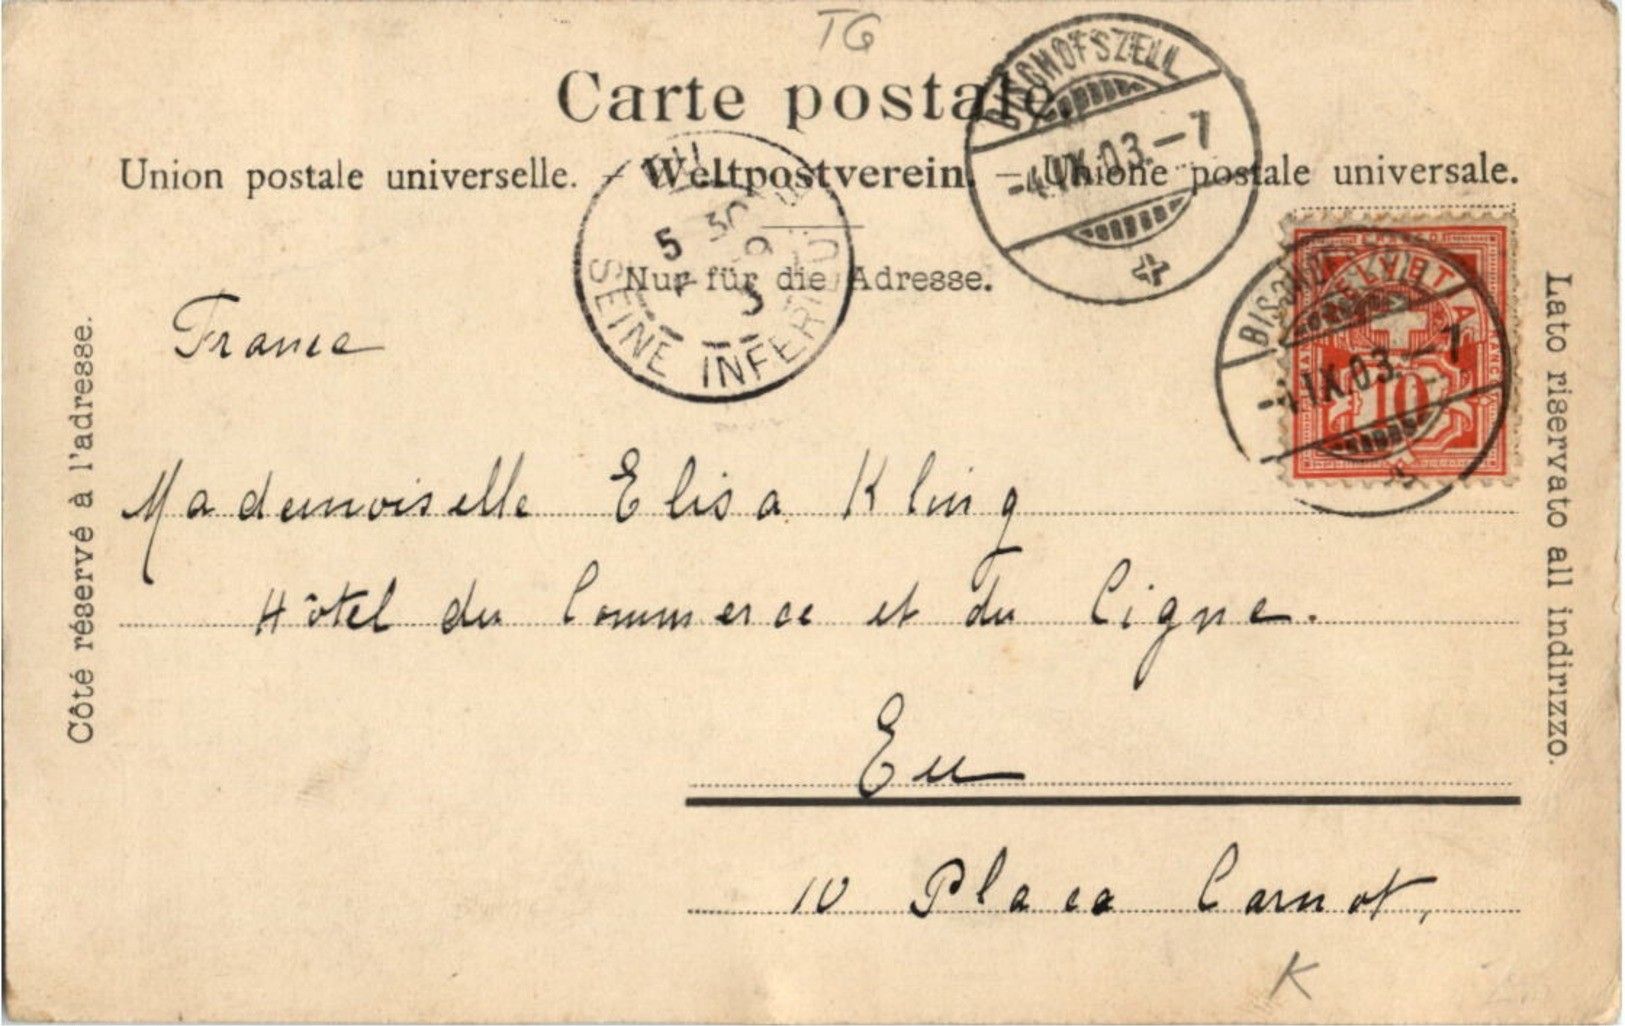 TG
Carte postale.
Union postale universelle. – Weltpostverein. – Unione postale universale.
Nur für die Adresse.
BISCHOFSZELL
-4.IX.03.–7
EU
5
9
SEINE INFERIEU
BISCHOFSZELL
-4.IX.03.–7
HELVETIA
10
Côté réservé à l'adresse.
Lato riservato all indirizzo.
France
Mademoiselle Elisa Kling
Hôtel du Commerce et du Cigne.
Eu
10 Place Carnot,
K